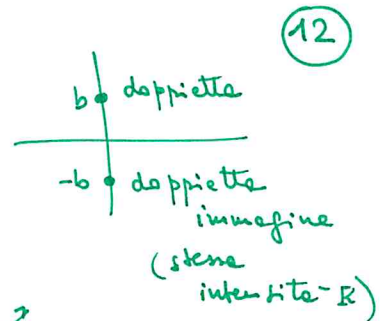 12
b doppietta
-b doppietta
immagine
(stessa
intensità - K)